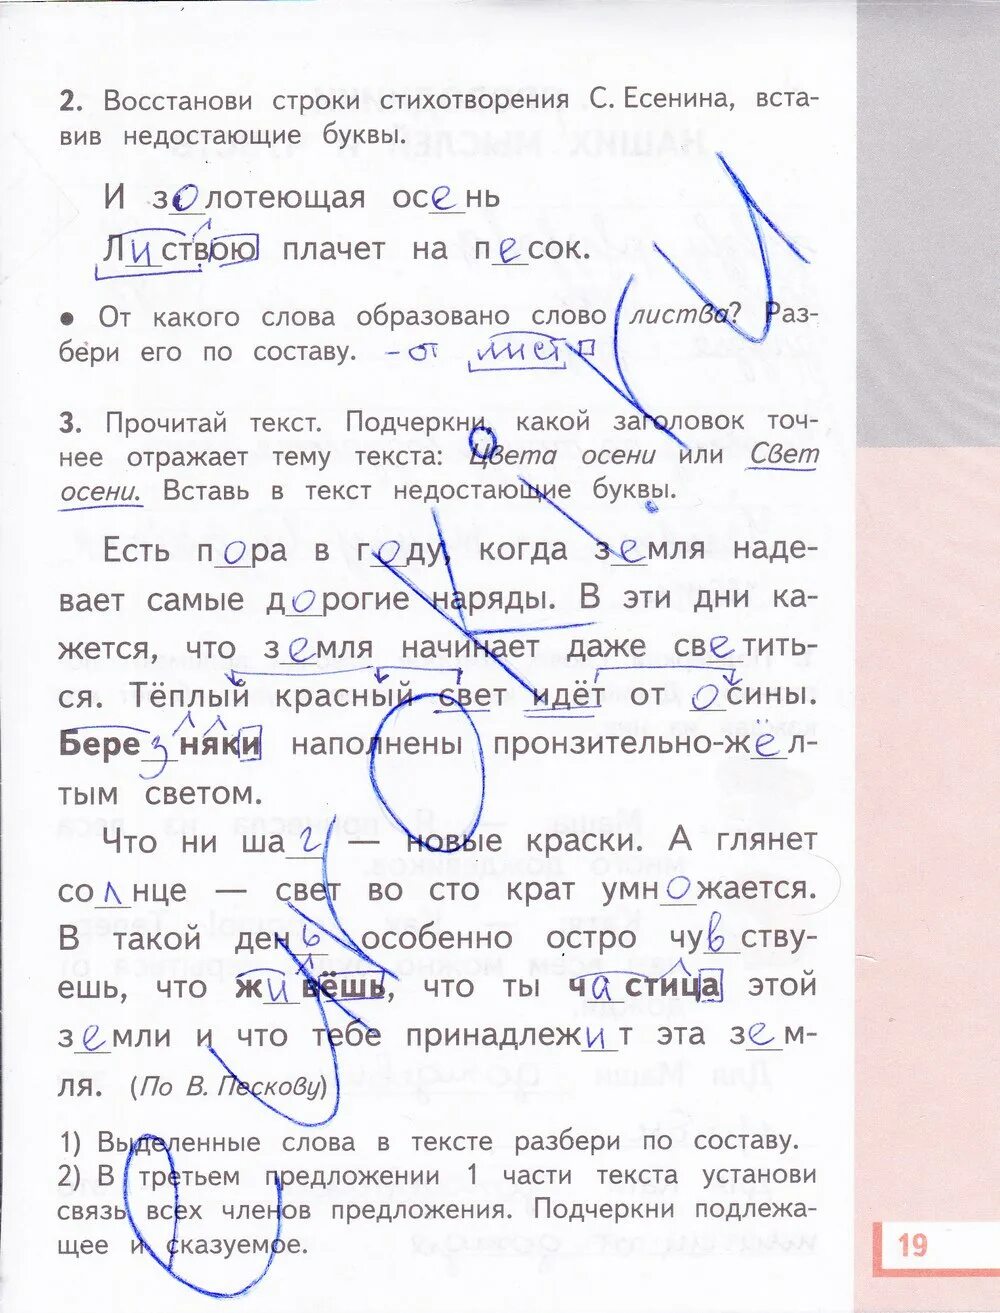 2. Восстанови строки стихотворения С. Есенина, вста-
вив недостающие буквы.
И золотеющая осень
Листвою плачет на песок.
• От какого слова образовано слово листва? Раз-
бери его по составу. - от лист
3. Прочитай текст. Подчеркни, какой заголовок точ-
нее отражает тему текста: Цвета осени или Свет
осени. Вставь в текст недостающие буквы.
Есть пора в году, когда земля наде-
вает самые дорогие наряды. В эти дни ка-
жется, что земля начинает даже светить-
ся. Тёплый красный свет идёт от осины.
Березняки наполнены пронзительно-жёл-
тым светом.
Что ни шаг — новые краски. А глянет
солнце — свет во сто крат умножается.
В такой день особенно остро чувству-
ешь, что живёшь, что ты частица этой
земли и что тебе принадлежит эта зем-
ля. (По В. Пескову)
1) Выделенные слова в тексте разбери по составу.
2) В третьем предложении 1 части текста установи
связь всех членов предложения. Подчеркни подлежа-
щее и сказуемое.
19